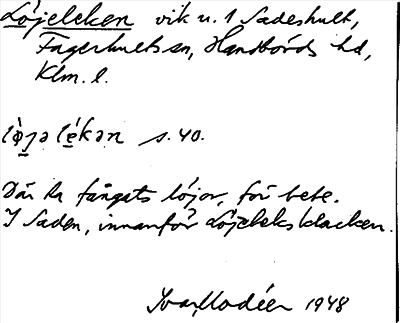 Löjeleken vik u. 1 Sadeshult,
Fagerhults sn, Handbörds hd,
Klm. l.
lö̀jəlékən s. 40.
Där ha fångats löjor, för bete.
I Saden, innanför Löjeleksklacken.
Ivar Modéer 1948